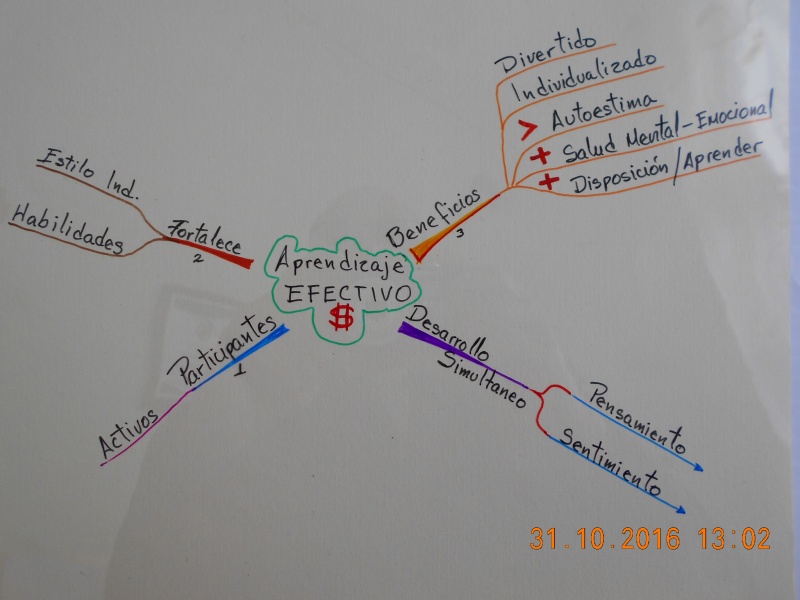 Aprendizaje
EFECTIVO
$
Participantes
1
Activos
Fortalece
2
Estilo Ind.
Habilidades
Beneficios
3
Divertido
Individualizado
> Autoestima
+ Salud Mental-Emocional
+ Disposición/Aprender
Desarrollo
Simultaneo
Pensamiento
Sentimiento
31.10.2016 13:02